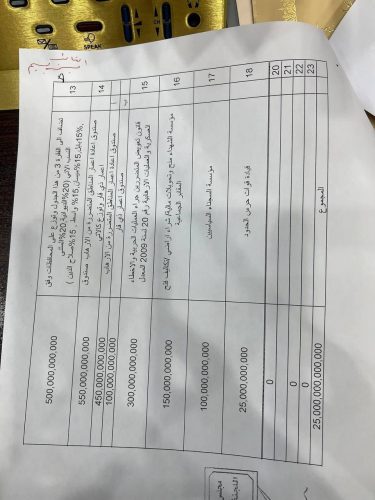 SPEAK
13
تضاف الى الفقرة 3 من هذا الجدول وتوزع على المحافظات وفق
النسب الاتي (20%الديوانية،20%المثنى
،15%بابل،15%ميسان،15% واسط ، 15%صلاح الدين )
500,000,000,000
14
صندوق اعادة اعمار المناطق المتضررة من الارهاب صندوق
اعمار ذي قار وتوزع كالاتي
550,000,000,000
صندوق اعادة اعمار المناطق المتضررة من الارهاب
450,000,000,000
صندوق اعمار ذي قار
100,000,000,000
15
قانون تعويض المتضررين جراء العمليات الحربية والاخطاء
العسكرية والعمليات الارهابية رقم 20 لسنة 2009 المعدل
300,000,000,000
16
مؤسسة الشهداء منح وتحويلات مالية/ شراء اراضي /تكاليف فتح
المقابر الجماعية
150,000,000,000
17
مؤسسة السجناء السياسيين
100,000,000,000
18
قيادة قوات حرس الحدود
25,000,000,000
20
0
21
22
0
23
0
المجموع
25,000,000,000,000
مجلس
اللجنة